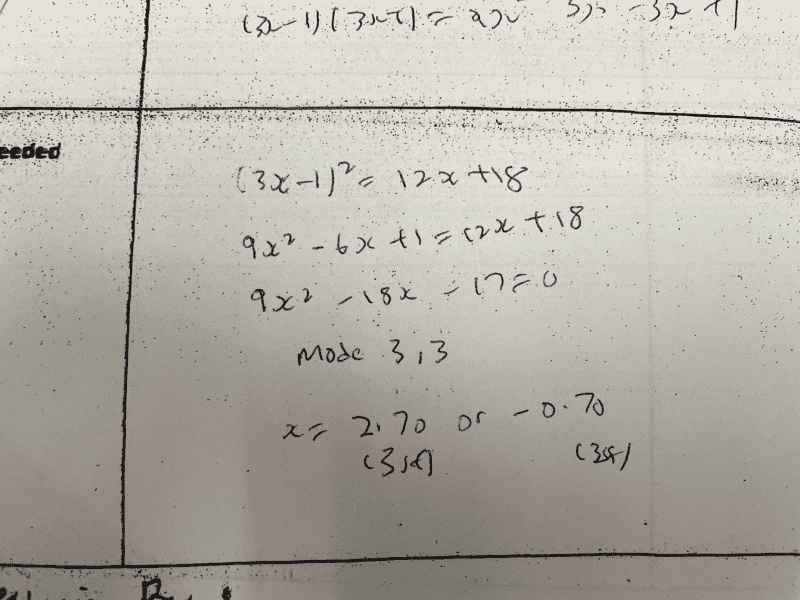 (3x-1)(3x-1) =
eeded
(3x-1)² = 12x+18
9x² - 6x +1 = 12x + 18
9x² - 18x - 17 = 0
Mode 3,3
x = 2.70 or -0.70
(3sf) (3sf)